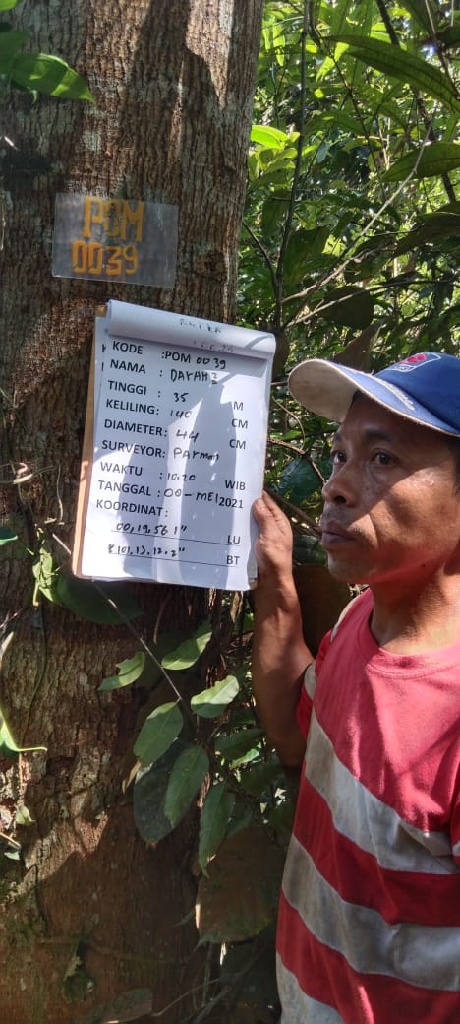 POM
0039
KODE :POM 0039
NAMA : DARAH 2
TINGGI : 35 M
KELILING: 140 CM
DIAMETER: 44 CM
SURVEYOR: PARMAN
WAKTU : 10.20 WIB
TANGGAL : 00-MEI 2021
KOORDINAT:
00,19,56 1" LU
101,13.12.2" BT